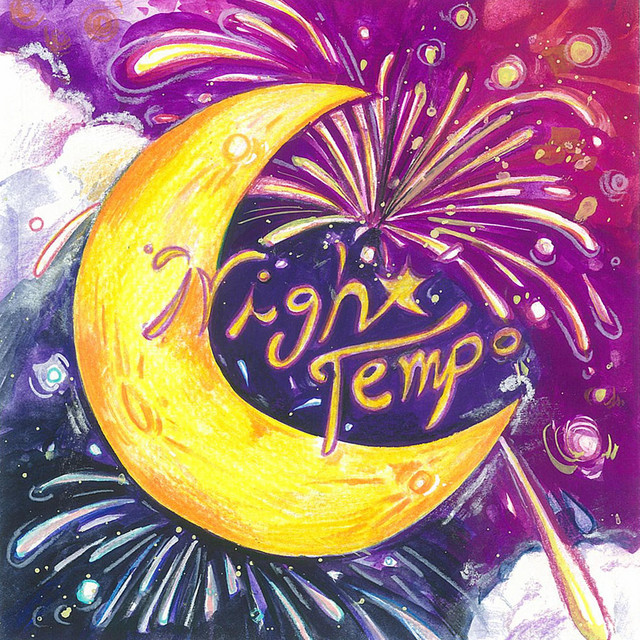 Nigh★
Tempo